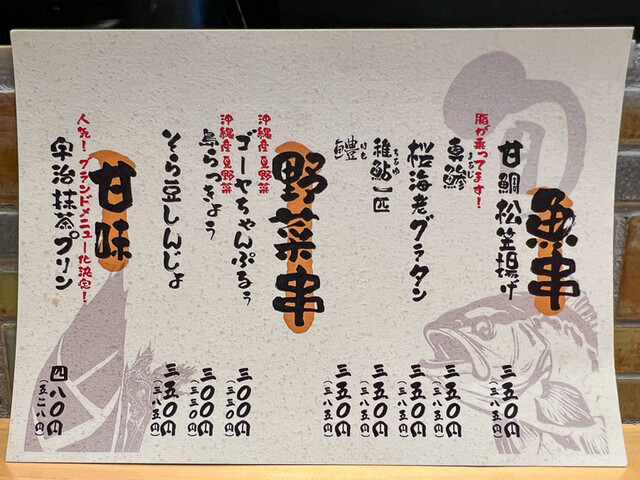 魚串
甘鯛松笠揚げ 三五〇円(三八五円)
脂が乗ってます!
真鯵 三五〇円(三八五円)
まあじ
桜海老グラタン 三五〇円(三八五円)
稚鮎一匹 三五〇円(三八五円)
ちあゆ
鱧 三五〇円(三八五円)
はも
野菜串
沖縄産夏野菜
ゴーヤちゃんぷるぅ 三〇〇円(三三〇円)
沖縄産夏野菜
島らっきょう 三〇〇円(三三〇円)
そら豆しんじょ 三五〇円(三八五円)
甘味
人気!グランドメニュー化決定!
宇治抹茶プリン 四八〇円(五二八円)